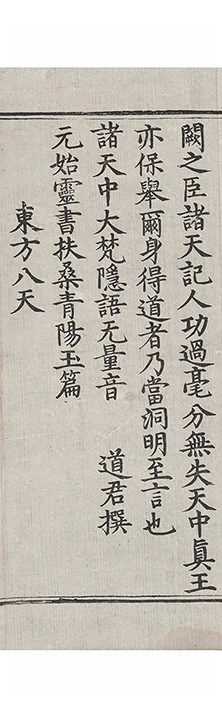 闕之臣諸天記人功過毫分無失天中真王
亦保舉爾身得道者乃當洞明至言也
諸天中大梵隱語无量音　道君撰
元始靈書扶桑青陽玉篇
東方八天